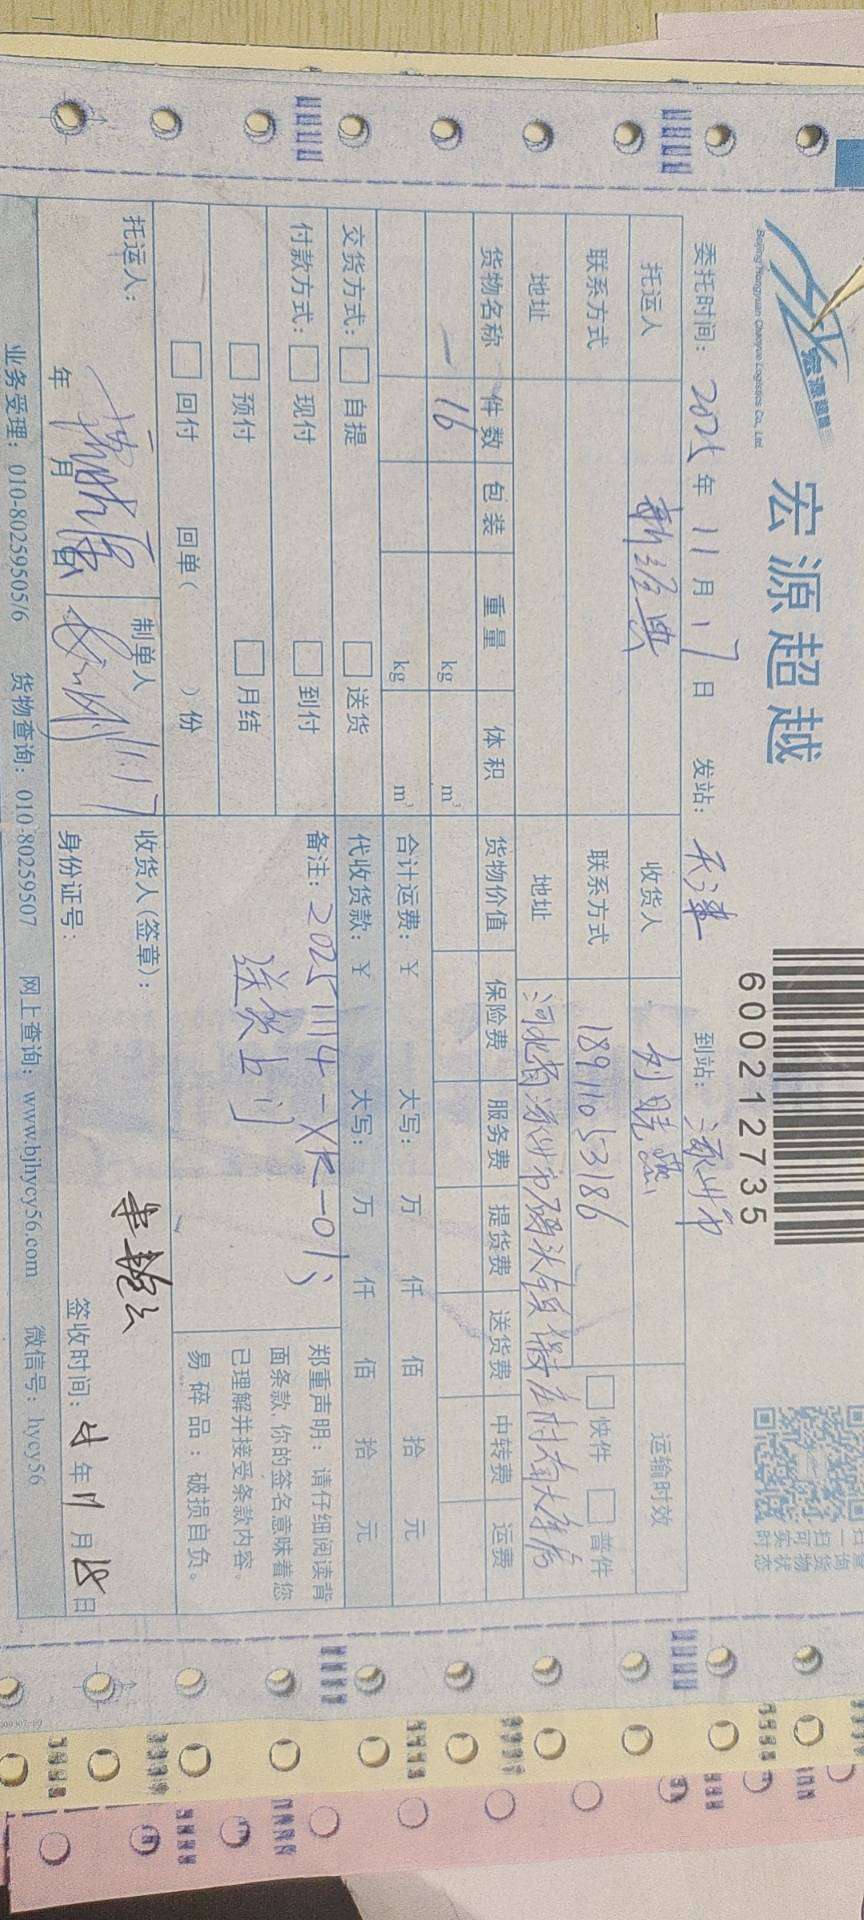 宏源超越
Beijing Hongyuan Chaoyue Logistics Co., Ltd
宏源超越
600212735
委托时间: 2025 年 11 月 17 日 发站: 天津 到站: 涿州市
托运人 新经典 收货人 刘晓燕 运输时效
联系方式 联系方式 18911053186 快件 普件
地址 地址 河北省涿州市码头镇
货物名称 件数 包装 重量 体积 货物价值 保险费 服务费 提货费 送货费 中转费 运费
16 kg m³
kg m³ 合计运费: ¥ 大写: 万 仟 佰 拾 元
交货方式: 自提 送货 代收货款: ¥ 大写: 万 仟 佰 拾 元
付款方式: 现付 到付 备注: 20251114-XK-01
预付 月结 送货上门
回付 回单( )份
郑重声明: 请仔细阅读背
面条款, 你的签名意味着您
已理解并接受条款内容。
易碎品: 破损自负。
托运人: 制单人 11.17 收货人(签章):
年 月 日 身份证号: 签收时间: 年 11 月 18 日
业务受理: 010-80259505/6 货物查询: 010-80259507 网上查询: www.bjhycy56.com 微信号: hycy56